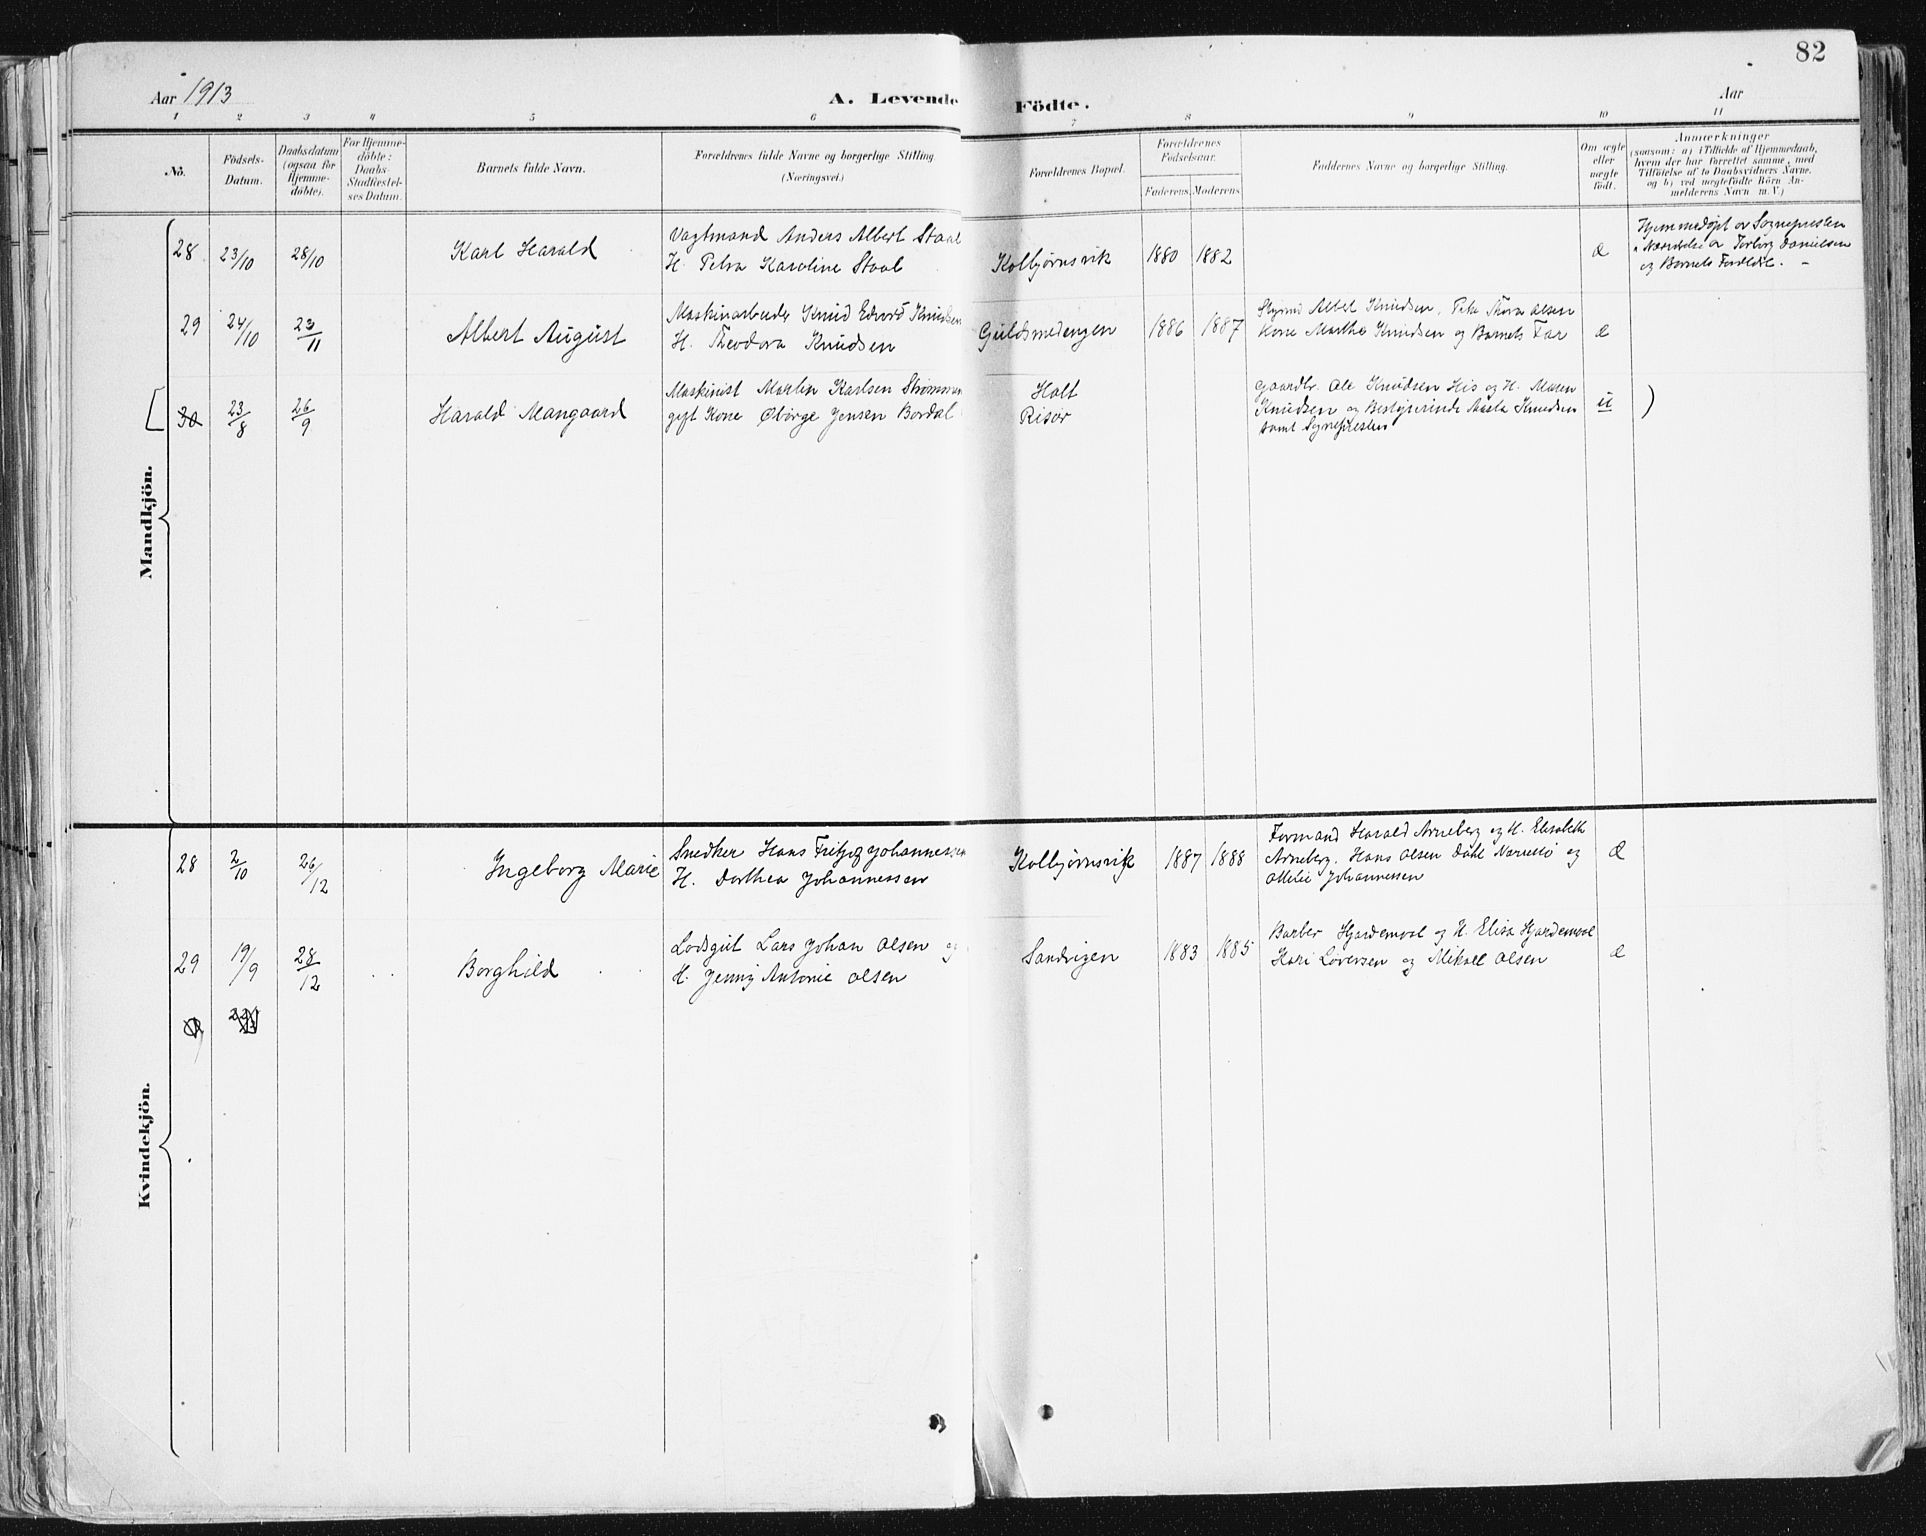 82
Aar 1913
A. Levende Födte.
Aar
1 2 3 4 5 6 7 8 9 10 11
No.
Födsels-
Datum.
Daabsdatum
(ogsaa for
Hjemme-
döbte).
For Hjemme-
döbte:
Daabs-
Stadfæstel-
ses Datum.
Barnets fulde Navn.
Forældrenes fulde Navne og borgerlige Stilling.
(Næringsvei.)
Forældrenes Bopæl.
Forældrenes
Födselsaar.
Faderens. Moderens.
Faddernes Navne og borgerlige Stilling.
Om ægte
eller
uægte
födt.
Anmærkninger
(saasom: a) i Tilfælde af Hjemmedaab,
hvem der har forrettet samme, med
Tilföielse af to Daabsvidners Navne,
og b) ved uægtefödte Börn An-
melderens Navn m.V.)
Mandkjön.
28 23/10 28/10 Karl Harald
Vagtmand Anders Albert Staal
H. Petra Karoline Staal
Kolbjørnsvik 1880 1882 æ
Hjemmedøpt av Sognepresten
Torborg Danielsen
og Barnets Forældre. -
29 24/10 23/11 Albert August
Maskinarbeider Knud Edvard Knudsen
H. Theodora Knudsen
Guldsmedengen 1886 1887
Styrmd Albert Knudsen, Thora Olsen
Kone Martha Knudsen og Barnets Far
æ
30 23/8 26/9 Harald Mangaard
Maskinist Martin Karlsen Strømmen
gift Kone Jensen Bordal
Holt
Risør
Gaardbr. Ole Knudsen His og H. Maren
Knudsen og Bestyrerinde Aasta Knudsen
samt Sognepresten
u )
Kvindekjön.
28 2/10 26/12 Ingeborg Marie
Snedker Hans Fritjof Johannessen
H. Dorthea Johannessen
Kolbjørnsvik 1887 1888
Formand Harald Arneberg og H. Elisabeth
Arneberg. Hans Olsen Dahl og
Otilie Johannessen
æ
29 19/9 28/12 Borghild
Lodsgut Lars Johan Olsen og
H. Jenny Antonie Olsen
Sandvigen 1883 1885
Barber Hjardemaal og H. Elisa Hjardemaal
Kari Løversen og Mikael Olsen
æ